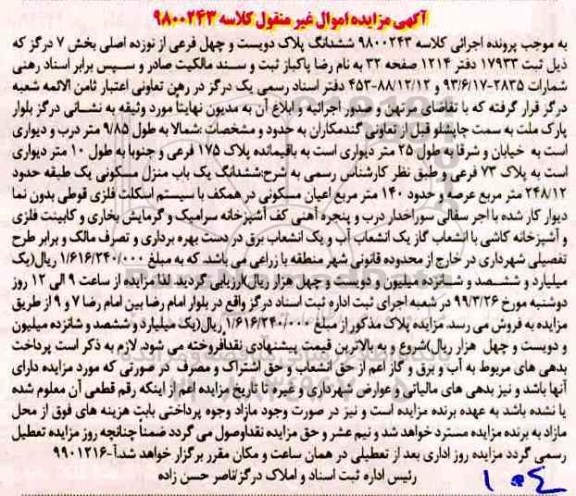 آگهی مزایده اموال غیر منقول کلاسه ۹۸۰۰۲۴۳
به موجب پرونده اجرائی کلاسه ۹۸۰۰۲۴۳ ششدانگ پلاک دویست و چهل فرعی از نوزده اصلی بخش ۷ درگز که
ذیل ثبت ۱۷۹۳۳ دفتر ۱۲۱۴ صفحه ۳۲ به نام رضا پاکباز ثبت و سند مالکیت صادر و سپس برابر اسناد رهنی
شمارات ۲۸۳۵-۹۳/۶/۱۷ و ۴۵۳-۸۸/۱۲/۱۲ دفتر اسناد رسمی یک درگز در رهن تعاونی اعتبار ثامن الائمه شعبه
درگز قرار گرفته که با تقاضای مرتهن و صدور اجرائیه و ابلاغ آن به مدیون نهایتاً مورد وثیقه به نشانی درگز بلوار
پارک ملت به سمت چاپشلو قبل از تعاونی گندمکاران به حدود و مشخصات :شمالا به طول ۹/۸۵ متر درب و دیواری
است به خیابان و شرقا به طول ۲۵ متر دیواری است به باقیمانده پلاک ۱۷۵ فرعی و جنوبا به طول ۱۰ متر دیواری
است به پلاک ۷۳ فرعی و طبق نظر کارشناس رسمی به شرح:ششدانگ یک باب منزل مسکونی یک طبقه حدود
۲۴۸/۱۲ متر مربع عرصه و حدود ۱۴۰ متر مربع اعیان مسکونی در همکف با سیستم اسکلت فلزی قوطی بدون نما
دیوار کار شده با اجر سفالی سوراخدار درب و پنجره آهنی کف آشپزخانه سرامیک و گرمایش بخاری و کابینت فلزی
و آشپزخانه کاشی با انشعاب گاز یک انشعاب آب و یک انشعاب برق در دست بهره برداری و تصرف مالک و برابر طرح
تفصیلی شهرداری در خارج از محدوده قانونی شهر منطقه با زراعی می باشد. که به مبلغ ۱/۶۱۶/۲۴۰/۰۰۰ ریال(یک
میلیارد و ششصد و شانزده میلیون و دویست و چهل هزار ریال)ارزیابی گردید لذا مزایده از ساعت ۹ الی ۱۲ روز
دوشنبه مورخ ۹۹/۳/۲۶ در شعبه اجرای ثبت اداره ثبت اسناد درگز واقع در بلوار امام رضا بین امام رضا ۷ و ۹ از طریق
مزایده به فروش می رسد. مزایده پلاک مذکور از مبلغ ۱/۶۱۶/۲۴۰/۰۰۰ ریال(یک میلیارد و ششصد و شانزده میلیون
و دویست و چهل هزار ریال)شروع و به بالاترین قیمت پیشنهادی نقدا فروخته می شود. لازم به ذکر است پرداخت
بدهی های مربوط به آب و برق و گاز اعم از حق انشعاب و حق اشتراک و مصرف در صورتی که مورد مزایده دارای
آنها باشد و نیز بدهی های مالیاتی و عوارض شهرداری و غیره تا تاریخ مزایده اعم از اینکه رقم قطعی آن معلوم شده
یا نشده باشد به عهده برنده مزایده است و نیز در صورت وجود مازاد وجوه پرداختی بابت هزینه های فوق از محل
مازاد به برنده مزایده مسترد خواهد شد و نیم عشر و حق مزایده نقدا وصول می گردد ضمناً چنانچه روز مزایده تعطیل
رسمی گردد مزایده روز اداری بعد از تعطیلی در همان ساعت و مکان مقرر برگزار خواهد شد.آ-۹۹۰۱۲۱۶
رئیس اداره ثبت اسناد و املاک درگز/ناصر حسن زاده